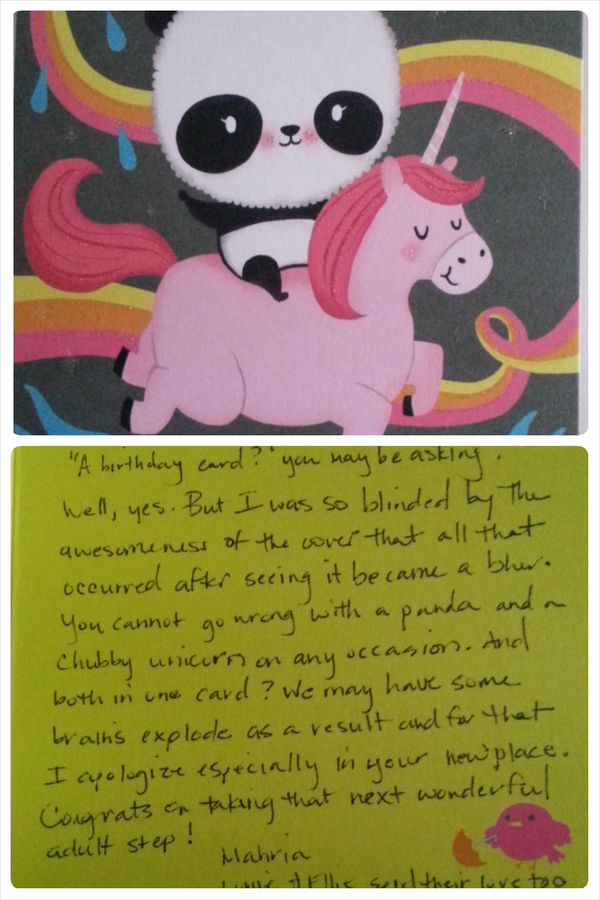 "A birthday card?" you may be asking.
Well, yes. But I was so blinded by the
awesomeness of the cover that all that
occurred after seeing it became a blur.
You cannot go wrong with a panda and a
chubby unicorn on any occasion. And
both in one card? We may have some
brains explode as a result and for that
I apologize especially in your new place.
Congrats on taking that next wonderful
adult step!
Mahria
send their love too